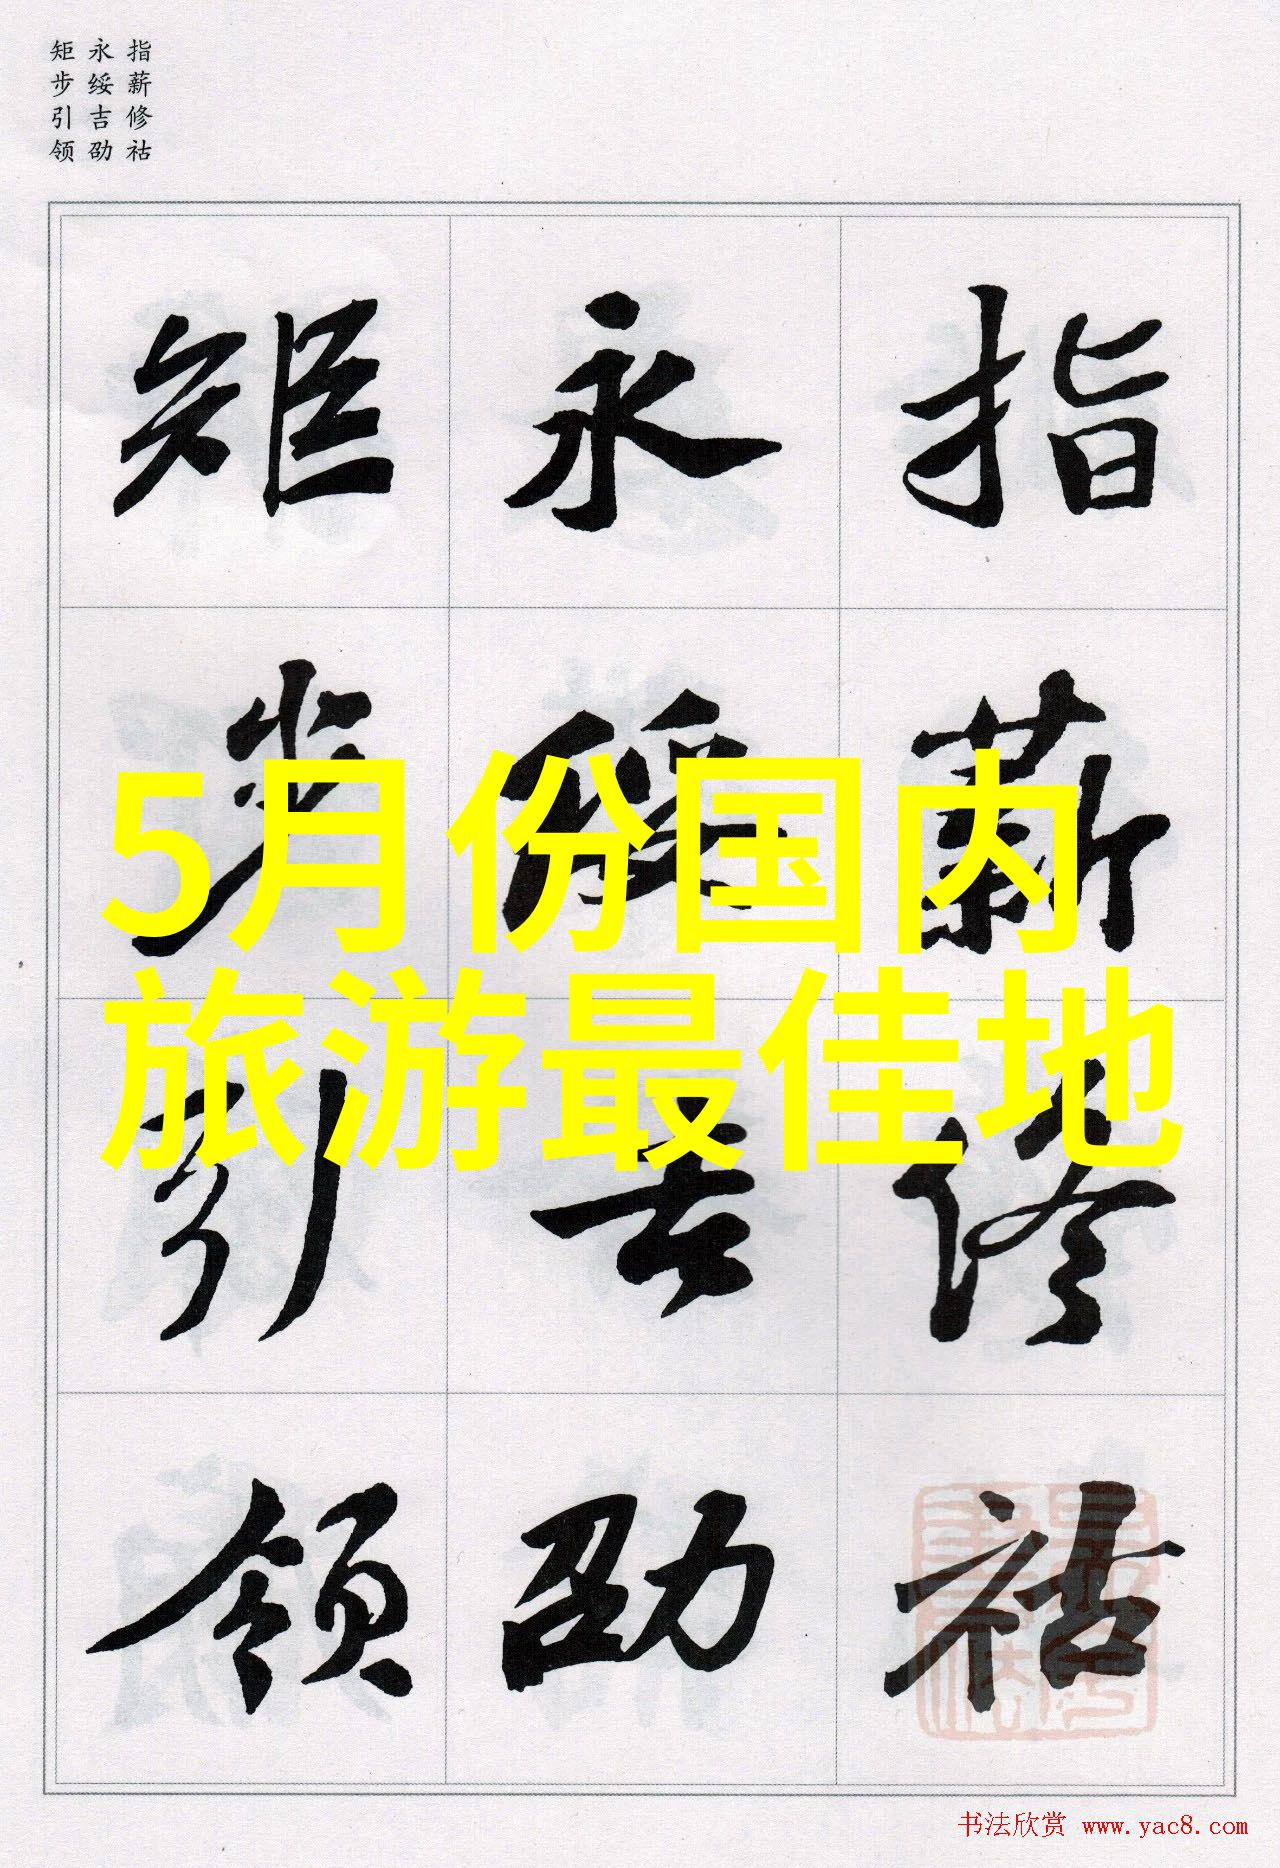 指薪修祜
永绥吉劭
矩步引领
指薪修祜
永绥吉劭
矩步引领
5月份国内
旅游最佳地
书法欣赏 www.yac8.com